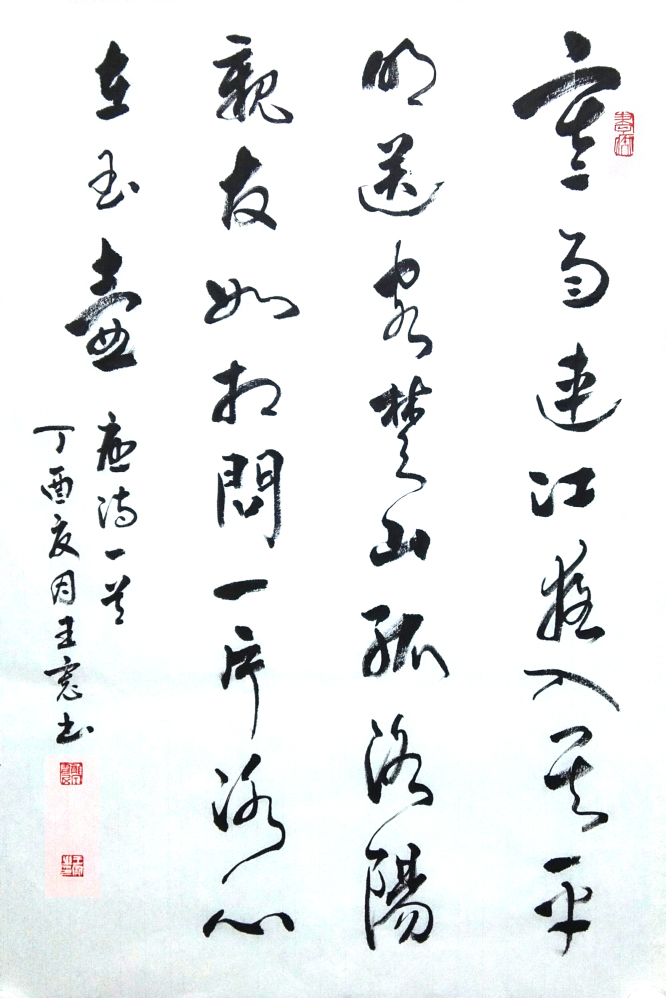 寒雨連江夜入吳平
明送客楚山孤洛陽
親友如相問一片冰心
在玉壺
唐詩一首
丁酉夏月王憲书